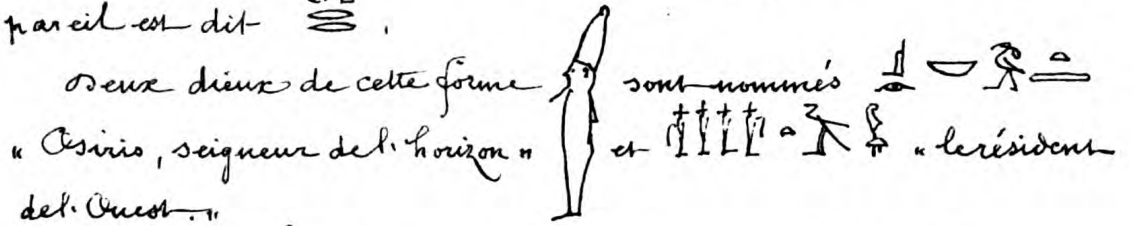 pareil est dit
Deux dieux de cette forme sont nommés
« Osiris, seigneur de l'horizon » et « le résident
de l'Ouest. »